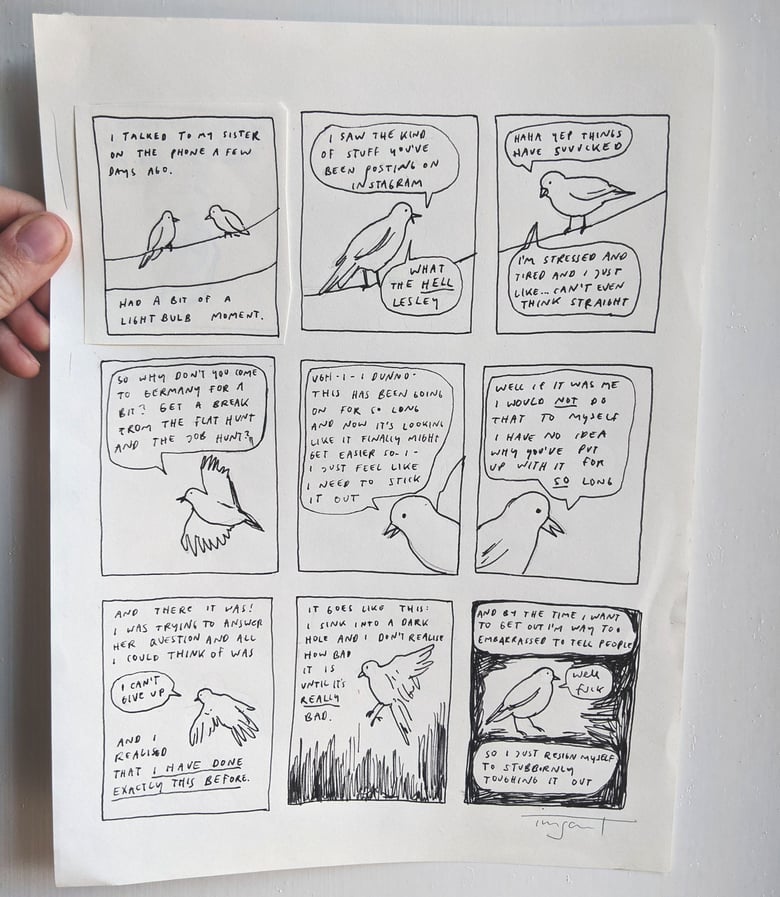 I TALKED TO MY SISTER
ON THE PHONE A FEW
DAYS AGO.
HAD A BIT OF A
LIGHTBULB MOMENT.
I SAW THE KIND
OF STUFF YOU'VE
BEEN POSTING ON
INSTAGRAM
WHAT
THE HELL
LESLEY
HAHA YEP THINGS
HAVE SUVVCKED
I'M STRESSED AND
TIRED AND I JUST
LIKE... CAN'T EVEN
THINK STRAIGHT
SO WHY DON'T YOU COME
TO GERMANY FOR A
BIT? GET A BREAK
FROM THE FLAT HUNT
AND THE JOB HUNT?
UGH-I-I DUNNO-
THIS HAS BEEN GOING
ON FOR SO LONG
AND NOW IT'S LOOKING
LIKE IT FINALLY MIGHT
GET EASIER SO-I-
I JUST FEEL LIKE
I NEED TO STICK
IT OUT
WELL IF IT WAS ME
I WOULD NOT DO
THAT TO MYSELF
I HAVE NO IDEA
WHY YOU'VE PUT
UP WITH IT FOR
SO LONG
AND THERE IT WAS!
I WAS TRYING TO ANSWER
HER QUESTION AND ALL
I COULD THINK OF WAS
I CAN'T
GIVE UP
AND I
REALISED
THAT I HAVE DONE
EXACTLY THIS BEFORE.
IT GOES LIKE THIS:
I SINK INTO A DARK
HOLE AND I DON'T REALISE
HOW BAD
IT IS
UNTIL IT'S
REALLY
BAD.
AND BY THE TIME I WANT
TO GET OUT I'M WAY TOO
EMBARRASSED TO TELL PEOPLE
WELL
FUCK
SO I JUST RESIGN MYSELF
TO STUBBORNLY
TOUGHING IT OUT